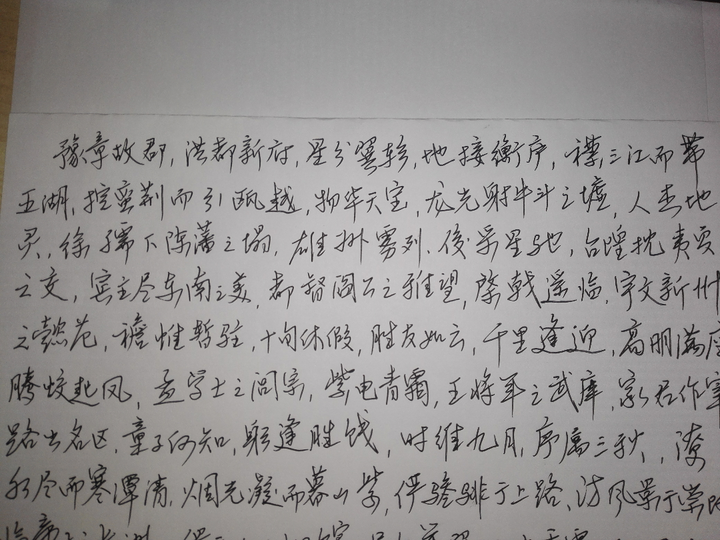 豫章故郡,洪都新府,星分翼轸,地接衡庐,襟三江而带
五湖,控蛮荆而引瓯越,物华天宝,龙光射牛斗之墟,人杰地
灵,徐孺下陈蕃之榻,雄州雾列,俊采星驰,台隍枕夷夏
之交,宾主尽东南之美,都督阎公之雅望,棨戟遥临,宇文新州
之懿范,襜帷暂驻,十旬休假,胜友如云,千里逢迎,高朋满座
腾蛟起凤,孟学士之词宗,紫电青霜,王将军之武库,家君作宰
路出名区,童子何知,躬逢胜饯,时维九月,序属三秋,潦
水尽而寒潭清,烟光凝而暮山紫,俨骖騑于上路,访风景于崇阿